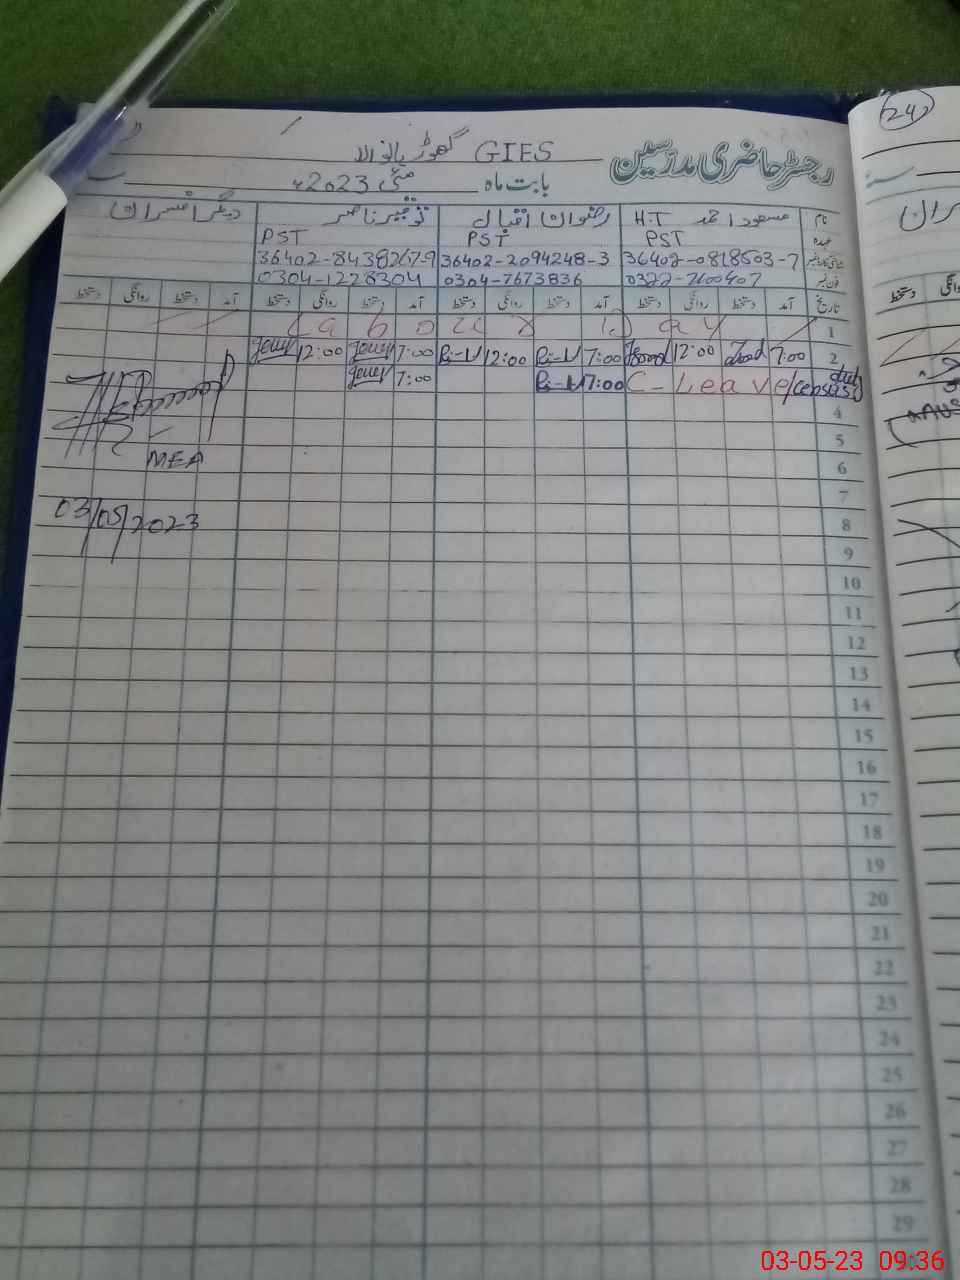 رجسٹر حاضری مدرسین GIES گھوڑیانوالا
بابت ماہ مئی 2023ء
نام مسعود احمد H.T رضوان اقبال توقیر ناصر دیگر افسران
عہدہ PST PST PST
36402-0818503-7 36402-2094248-3 36402-8438267-9
فون نمبر 0322-7600407 0304-7673836 0304-1228304
تاریخ آمد دستخط روانگی دستخط آمد دستخط روانگی دستخط آمد دستخط روانگی دستخط آمد دستخط روانگی دستخط
1 Labour Day
2 7:00 12:00 7:00 12:00 7:00 12:00
C-Leave/census duty 7:00 7:00
4
5
MEA
6
7
03/05/2023
8
9
10
11
12
13
14
15
16
17
18
19
20
21
22
23
24
25
26
27
28
29
24
03-05-23 09:36